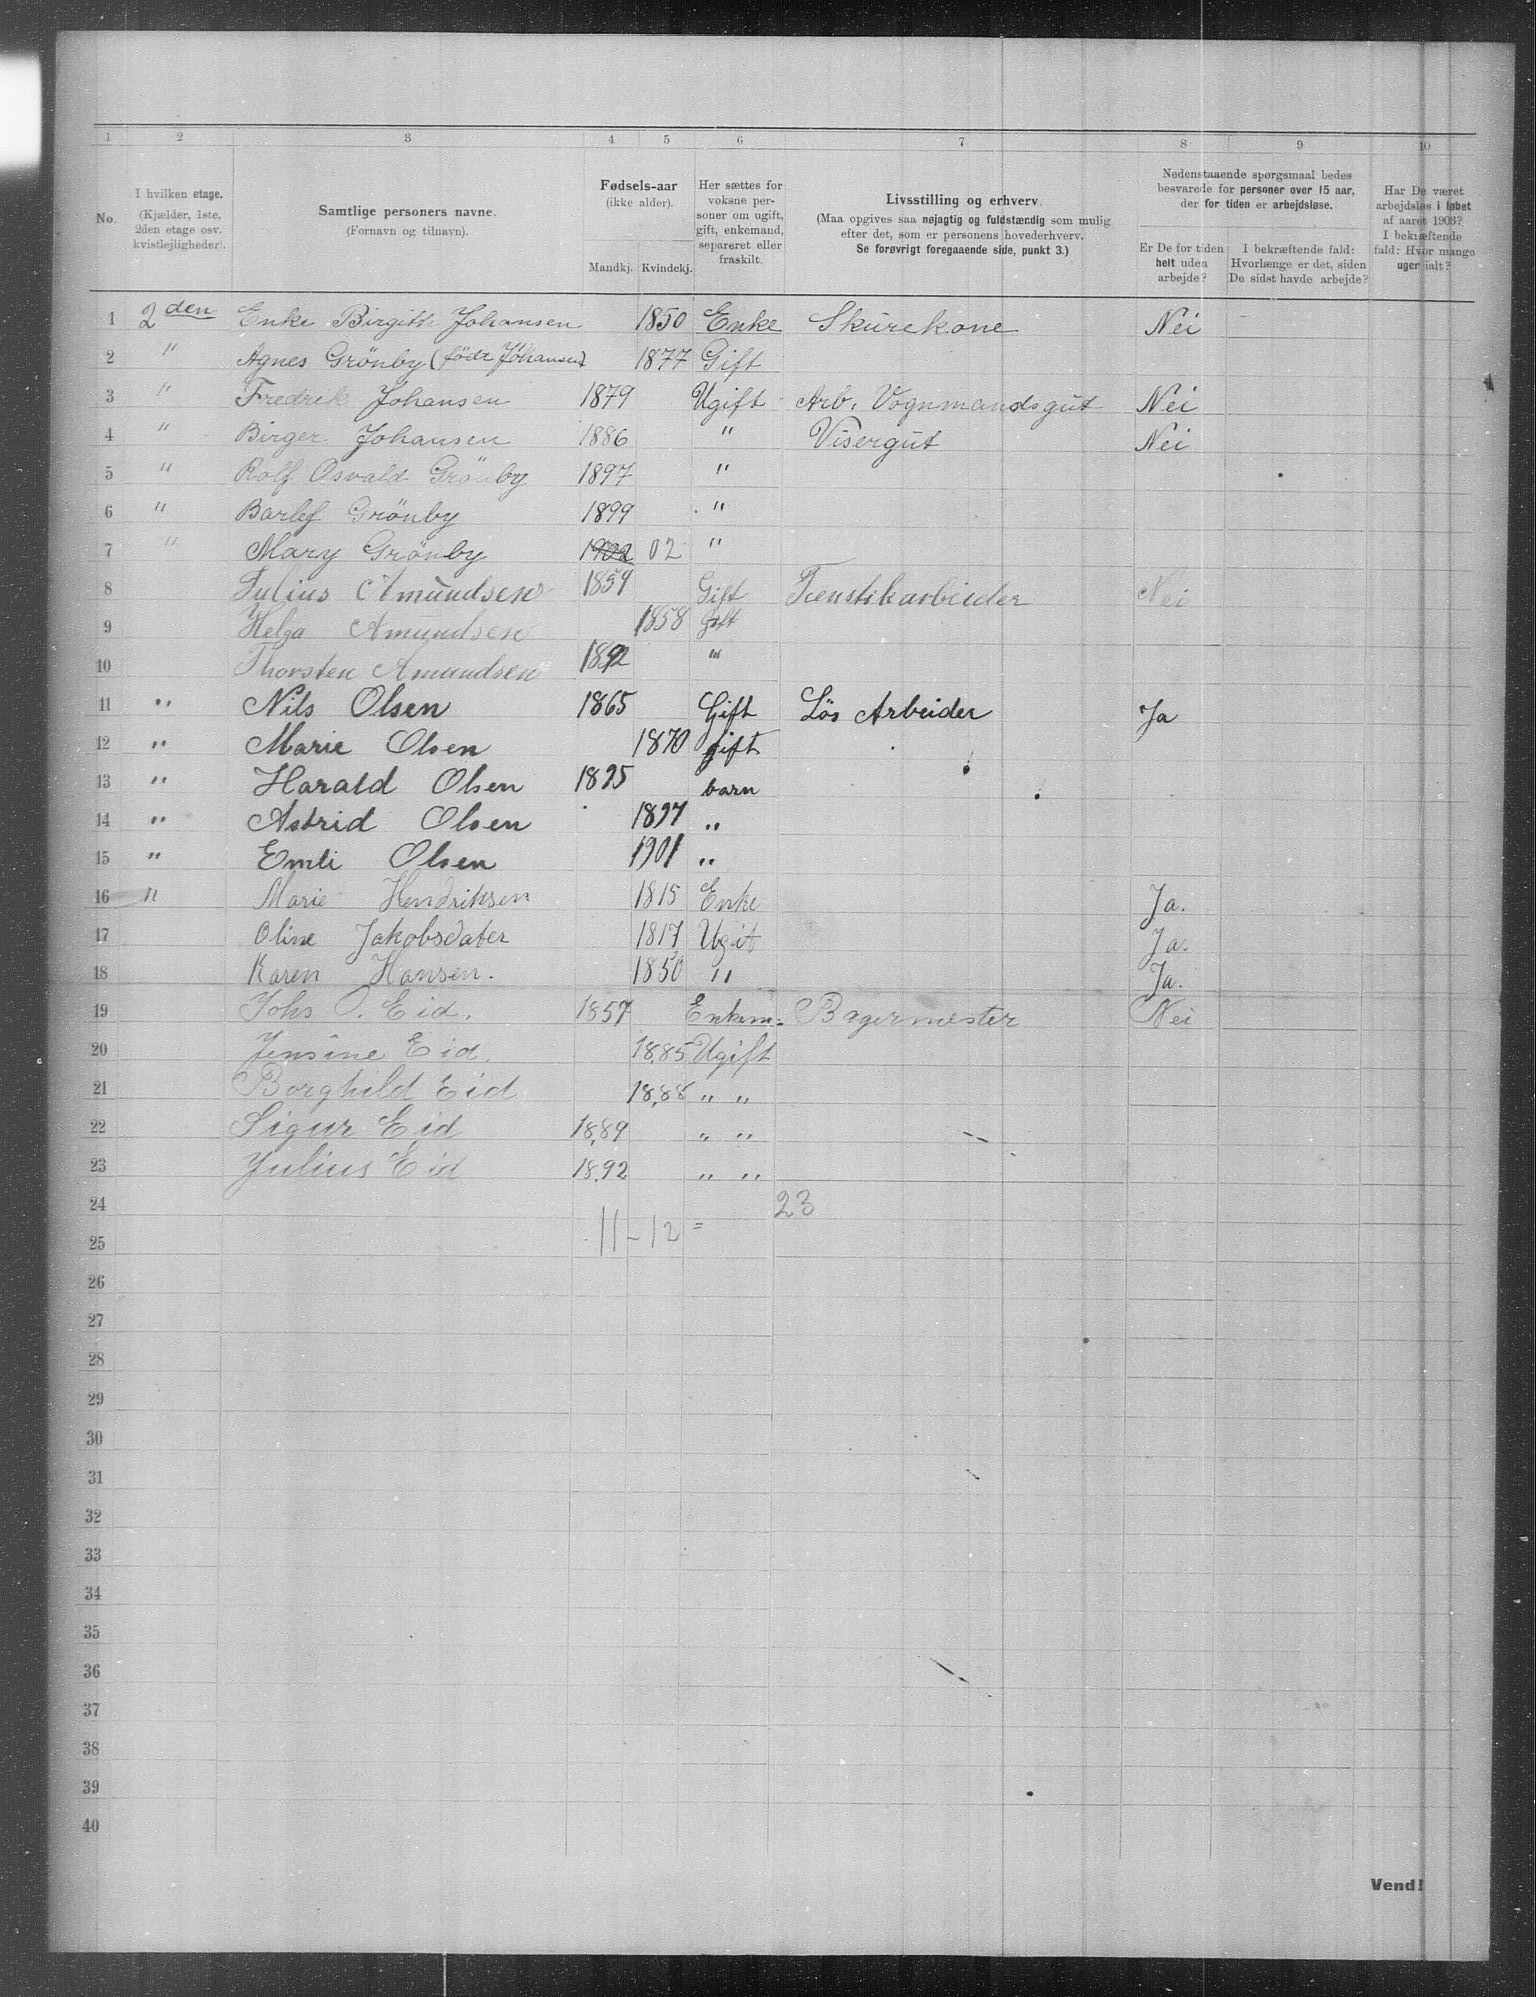 1 2 3 4 5 6 7 8 9 10
No.
I hvilken etage.
(Kjælder, 1ste,
2den etage osv.
kvistlejligheder).
Samtlige personers navne.
(Fornavn og tilnavn).
Fødsels-aar
(ikke alder).
Mandkj. Kvindekj.
Her sættes for
voksne per-
soner om ugift,
gift, enkemand,
separeret eller
fraskilt.
Livsstilling og erhverv.
(Maa opgives saa nøjagtig og fuldstændig som mulig
efter det, som er personens hovederhverv.
Se forøvrigt foregaaende side, punkt 3.)
Nedenstaaende spørgsmaal bedes
besvarede for personer over 15 aar,
der for tiden er arbejdsløse.
Er De for tiden
helt uden
arbejde?
I bekræftende fald:
Hvorlænge er det, siden
De sidst havde arbejde?
Har De været
arbejdsløs i løbet
af aaret 1903?
I bekræftende
fald: Hvor mange
uger ialt?
1 2den Enke Birgitt Johansen 1850 Enke Skurekone Nei
2 " Agnes Grönby (födt Johansen) 1877 Gift
3 " Fredrik Johansen 1879 Ugift Arb. Vognmandsgut Nei
4 " Birger Johansen 1886 " Visergut Nei
5 " Rolf Osvald Grönby 1897 "
6 " Barlef Grönby 1899 "
7 " Mary Grönby 1902 02 "
8 Julius Amundsen 1859 Gift Fyrstikarbeider Nei
9 Helga Amundsen 1858 Gift
10 Thorsten Amundsen 1892 "
11 " Nils Olsen 1865 Gift Lös Arbeider Ja
12 " Marie Olsen 1870 gift
13 " Harald Olsen 1895 barn
14 " Astrid Olsen 1897 "
15 " Emli Olsen 1901 "
16 " Marie Hendriksen 1815 Enke Ja.
17 Oline Jakobsdater 1817 Ugit Ja.
18 Karen Hansen. 1850 " Ja.
19 Johs O. Eid. 1857 Enkem= Bagermester Nei
20 Jensine Eid. 1885 Ugift
21 Borghild Eid 1888 " "
22 Sigur Eid 1889 " "
23 Julius Eid 1892 " "
24 23
25 11-12 =
26
27
28
29
30
31
32
33
34
35
36
37
38
39
40
Vend!